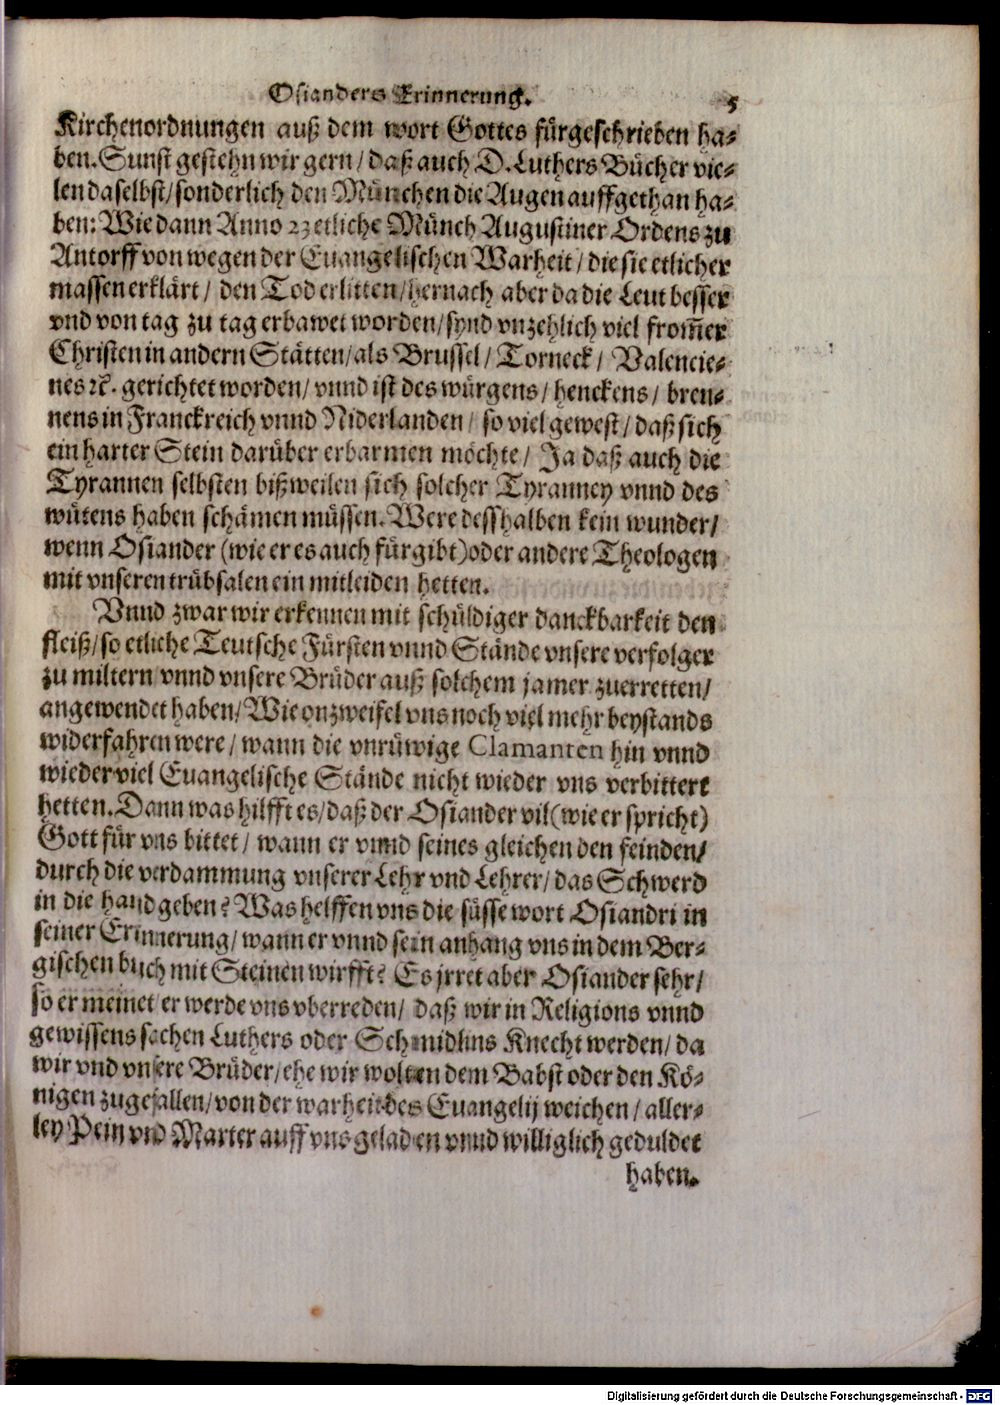 Osianders Erinnerung. 5
Kirchenordnungen auß dem wort Gottes fürgeschrieben ha-
ben. Sunst gestehn wir gern / daß auch D. Luthers Bücher vie-
len daselbst / sonderlich den München die Augen auffgethan ha-
ben: Wie dann Anno 23 etliche Münch Augustiner Ordens zu
Antorff von wegen der Euangelischen Warheit / die sie etlicher
massen erklärt / den Tod erlitten / hernach aber da die Leut besser
vnd von tag zu tag erbawet worden / synd vnzehlich viel from̃er
Christen in andern Stätten / als Brussel / Torneck / Valencie-
nes ꝛc. gerichtet worden / vnnd ist des würgens / henckens / bren-
nens in Franckreich vnnd Niderlanden / so viel gewest / daß sich
ein harter Stein darüber erbarmen möchte / Ja daß auch die
Tyrannen selbsten bißweilen sich solcher Tyranney vnnd des
wütens haben schämen müssen. Were desshalben kein wunder /
wenn Osiander (wie er es auch fürgibt) oder andere Theologen
mit vnseren trübsalen ein mitleiden hetten.
Vnnd zwar wir erkennen mit schüldiger danckbarkeit den
fleiß / so etliche Teutsche Fürsten vnnd Stände vnsere verfolger
zu miltern vnnd vnsere Brüder auß solchem jamer zuerretten /
angewendet haben / Wie onzweifel vns noch viel mehr beystands
widerfahren were / wann die vnrüwige Clamanten hin vnnd
wieder viel Euangelische Stände nicht wieder vns verbittert
hetten. Dann was hilfft es / daß der Osiander vil (wie er spricht)
Gott für vns bittet / wann er vnnd seines gleichen den feinden /
durch die verdammung vnserer Lehr vnd Lehrer / das Schwerd
in die hand geben? Was helffen vns die süsse wort Osiandri in
seiner Erinnerung / wann er vnnd sein anhang vns in dem Ber-
gischen buch mit Steinen wirfft? Es jrret aber Osiander sehr /
so er meinet er werde vns vberreden / daß wir in Religions vnnd
gewissens sachen Luthers oder Schmidlins Knecht werden / da
wir vnd vnsere Brüder / ehe wir wolten dem Babst oder den Kö-
nigen zugefallen / von der warheit des Euangelij weichen / aller-
ley Pein vnd Marter auff vns geladen vnnd williglich geduldet
haben.
Digitalisierung gefördert durch die Deutsche Forschungsgemeinschaft - DFG